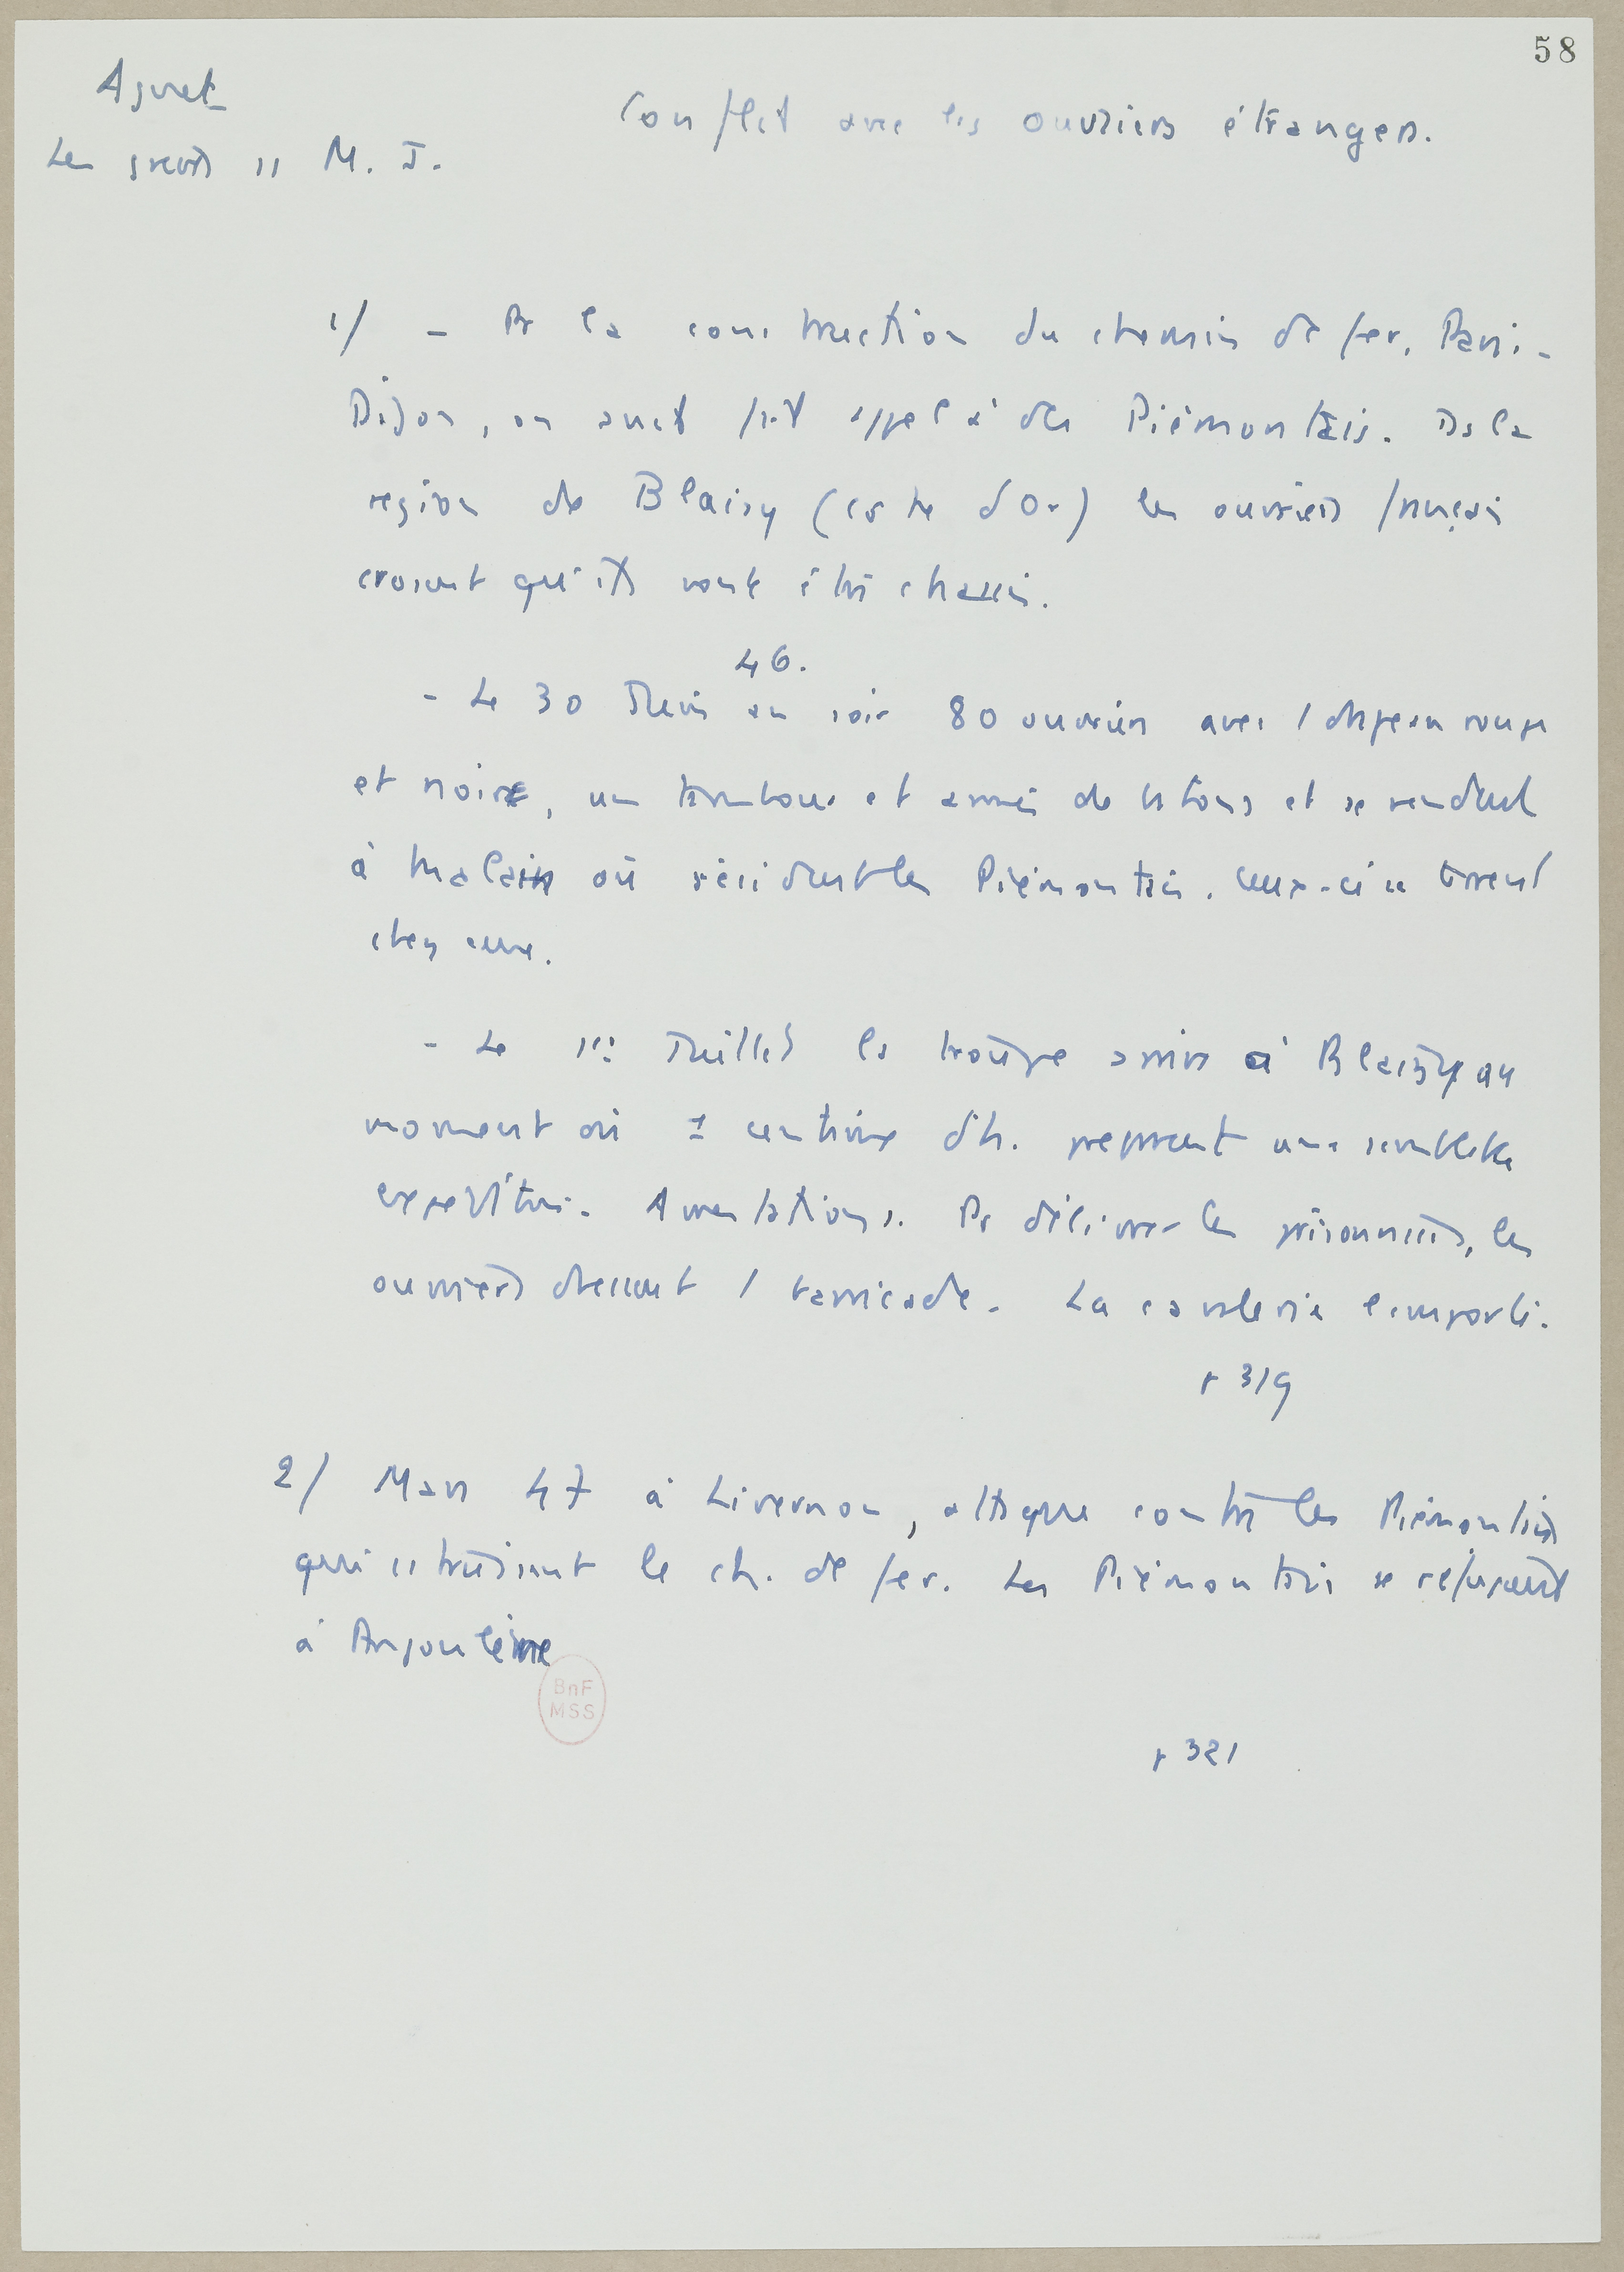 58
Aguet
Les grèves ss M. J.
Conflit avec les ouvriers étrangers.
1/ – Pr la construction du chemin de fer, Paris-
Dijon, on avait fait appel à des Piémontais. Ds la
region de Blaisy (cote d'Or) les ouvriers français
croient qu'ils vont être chassés.
46.
– Le 30 Juin au soir 80 ouvriers avec 1 drapeau rouge
et noir, un tambour et armés de bâtons et se rendent
à Malain où résident les Piémontais. Ceux-ci se tirent
chez eux.
– Le 1er Juillet la troupe arrive à Blaisy au
moment où 1 centaine d'h. préparent une semblable
expédition. Arrestations. Pr délivrer les prisonniers, les
ouvriers dressent 1 barricade. La cavalerie l'emporte.
p 319
2/ Mars 47 à Livernon, attaque contre les Piémontais
qui construisent le ch. de fer. Les Piémontais se refugient
à Angoulême
BnF
MSS
p 321